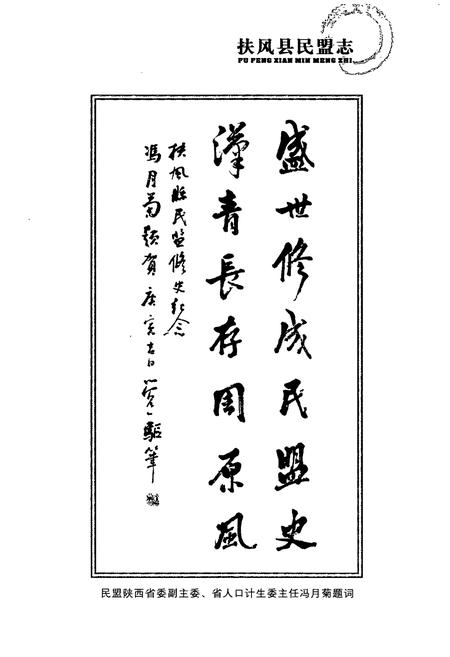 扶风县民盟志
FU FENG XIAN MIN MENG ZHI
盛世修成民盟史
漢青長存周原風
扶風縣民盟修史紀念
馮月菊題賀 庚寅吉日
驅筆
民盟陕西省委副主委、省人口计生委主任冯月菊题词